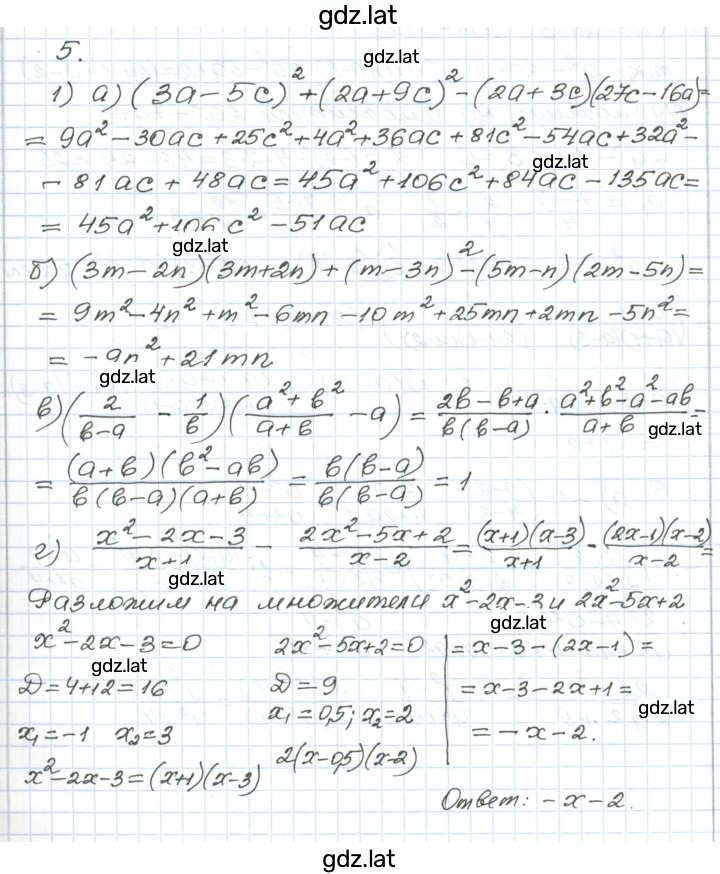 gdz.lat
5.
gdz.lat
1) а) (3a-5c)²+(2a+9c)²-(2a+3c)(27c-16a)=
= 9a²-30ac+25c²+4a²+36ac+81c²-54ac+32a²-
gdz.lat
- 81ac + 48ac = 45a²+106c²+84ac-135ac=
= 45a²+106c²-51ac
gdz.lat
б) (3m-2n)(3m+2n)+(m-3n)²-(5m-n)(2m-5n)=
= 9m²-4n²+m²-6mn-10m²+25mn+2mn-5n²=
= -9n²+21mn
gdz.lat
в) (2/(в-a) - 1/в)((a²+в²)/(a+в) - a) = (2в-в+a)/(в(в-a)) · (a²+в²-a²-aв)/(a+в) =
gdz.lat
= ((a+в)(в²-aв))/(в(в-a)(a+в)) = (в(в-a))/(в(в-a)) = 1
г) (x²-2x-3)/(x+1) - (2x²-5x+2)/(x-2) = ((x+1)(x-3))/(x+1) - ((2x-1)(x-2))/(x-2) =
gdz.lat
Разложим на множители x²-2x-3 и 2x²-5x+2
gdz.lat
x²-2x-3=0
gdz.lat
D=4+12=16
x₁=-1 x₂=3
x²-2x-3=(x+1)(x-3)
2x²-5x+2=0
D=9
x₁=0,5; x₂=2
2(x-0,5)(x-2)
= x-3-(2x-1)=
= x-3-2x+1=
gdz.lat
= -x-2.
Ответ: -x-2.
gdz.lat